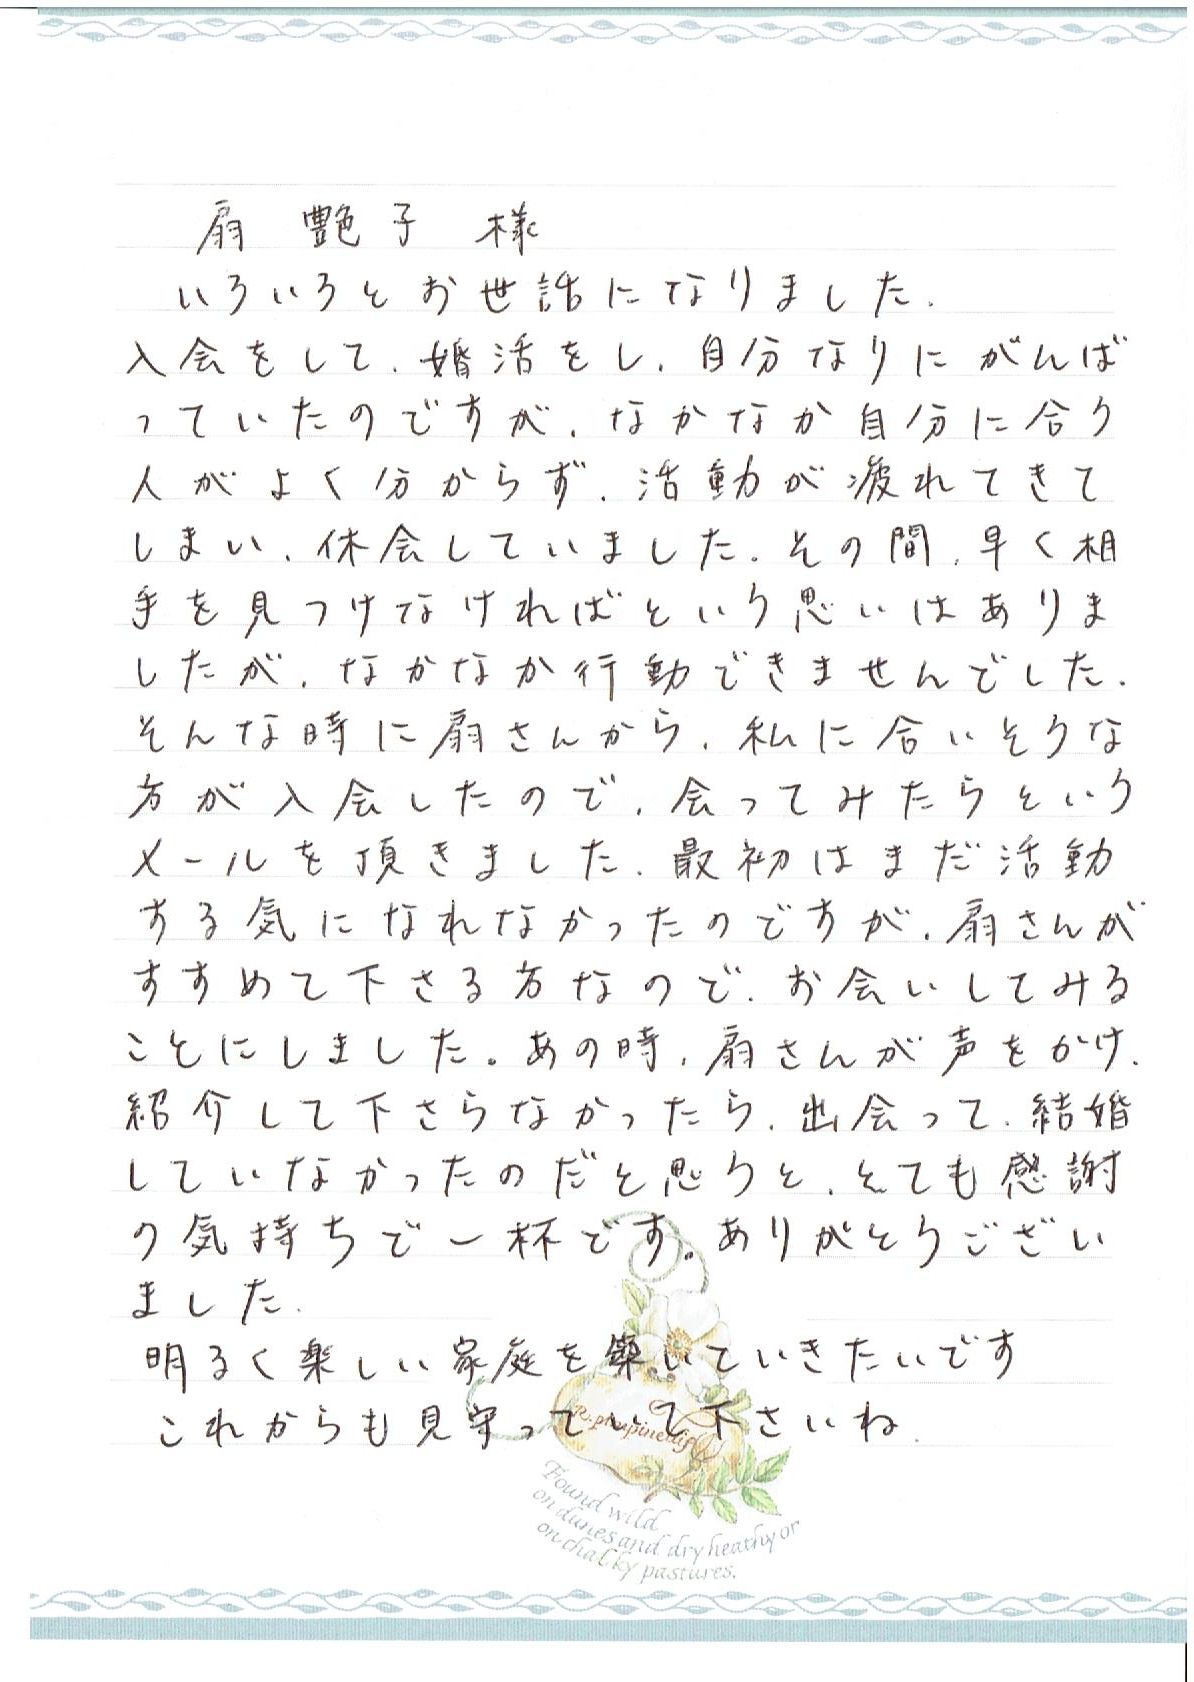 扇 艶子 様
いろいろとお世話になりました.
入会をして、婚活をし、自分なりにがんば
っていたのですが、なかなか自分に合う
人がよく分からず、活動が疲れてきて
しまい、休会していました. その間、早く相
手を見つけなければという思いはありま
したが、なかなか行動できませんでした.
そんな時に扇さんから、私に合いそうな
方が入会したので、会ってみたらという
メールを頂きました. 最初はまだ活動
する気になれなかったのですが、扇さんが
すすめて下さる方なので、お会いしてみる
ことにしました。あの時、扇さんが声をかけ、
紹介して下さらなかったら、出会って、結婚
していなかったのだと思うと、とても感謝
の気持ちで一杯です。ありがとうござい
ました.
明るく楽しい家庭を築いていきたいです
これからも見守っていて下さいね.
Found wild
on dunes and dry heathy or
on chalky pastures.